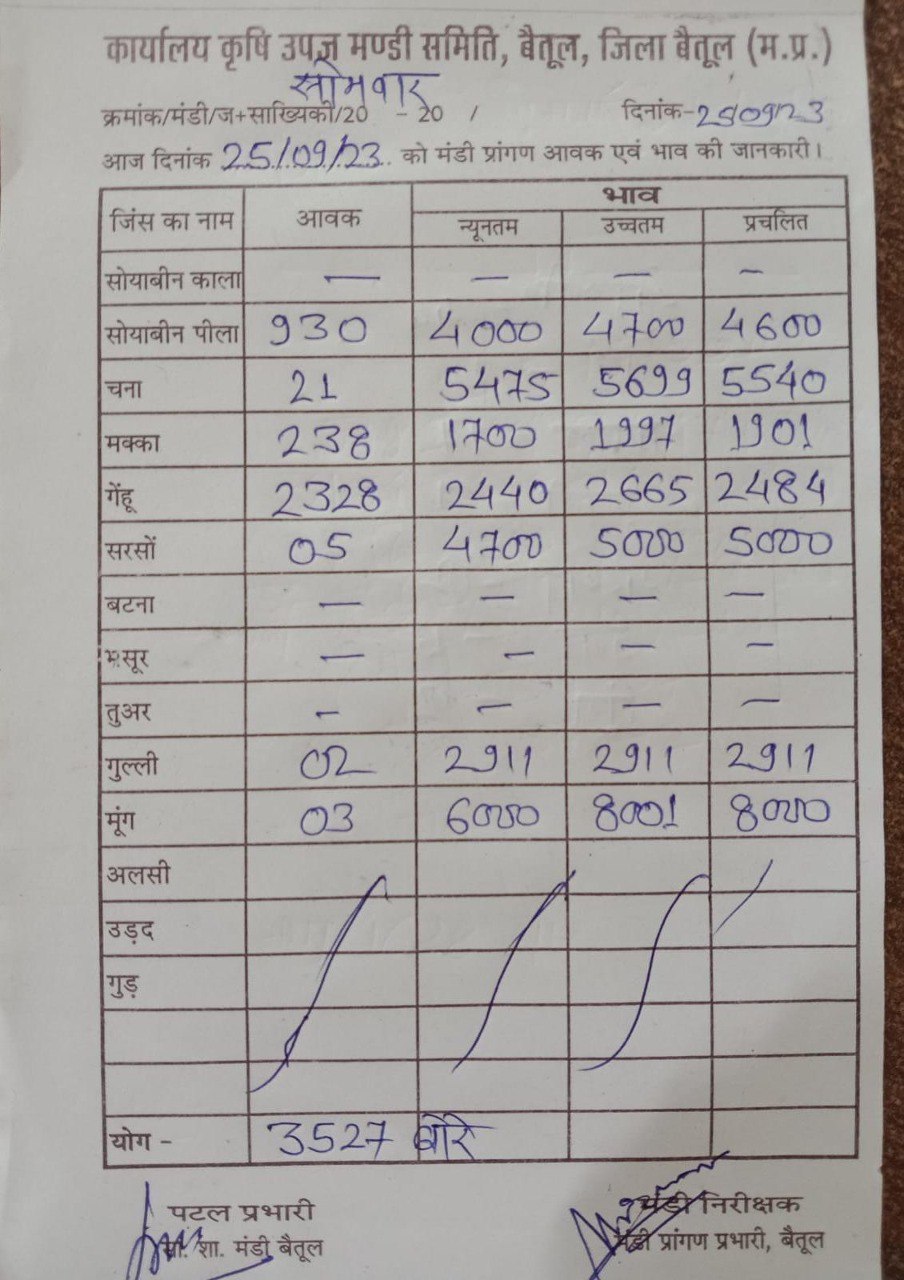 कार्यालय कृषि उपज मण्डी समिति, बैतूल, जिला बैतूल (म.प्र.)
सोमवार
क्रमांक/मंडी/ज+साख्यिकी/20 - 20 / दिनांक-25/09/23
आज दिनांक 25/09/23 को मंडी प्रांगण आवक एवं भाव की जानकारी।
जिंस का नाम आवक भाव
न्यूनतम उच्चतम प्रचलित
सोयाबीन काला — — — —
सोयाबीन पीला 930 4000 4700 4600
चना 21 5475 5699 5540
मक्का 238 1700 1997 1901
गेंहू 2328 2440 2665 2484
सरसों 05 4700 5000 5000
बटना — — — —
मसूर — — — —
तुअर — — — —
गुल्ली 02 2911 2911 2911
मूंग 03 6000 8001 8000
अलसी
उड़द
गुड़
योग - 3527 बोरे
पटल प्रभारी मंडी निरीक्षक
शा. मंडी बैतूल मंडी प्रांगण प्रभारी, बैतूल